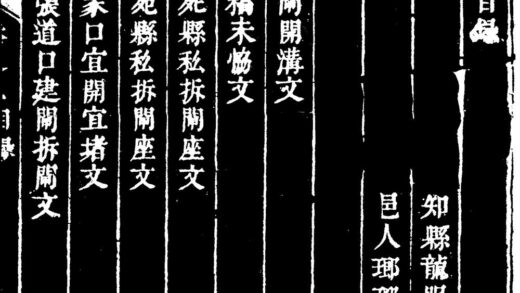 目錄
知縣龍
邑人瑯
閘開溝文
稿未愶文
縣私拆閘座文
縣私拆閘座文
家口宜開宜堵文
張道口建閘拆閘文
目錄